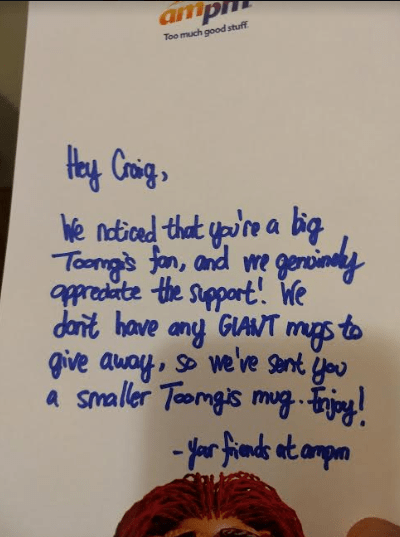 ampm
Too much good stuff.
Hey Craig,
We noticed that you're a big
Toomgis fan, and we genuinely
appreciate the support! We
don't have any GIANT mugs to
give away, so we've sent you
a smaller Toomgis mug. Enjoy!
- your friends at ampm